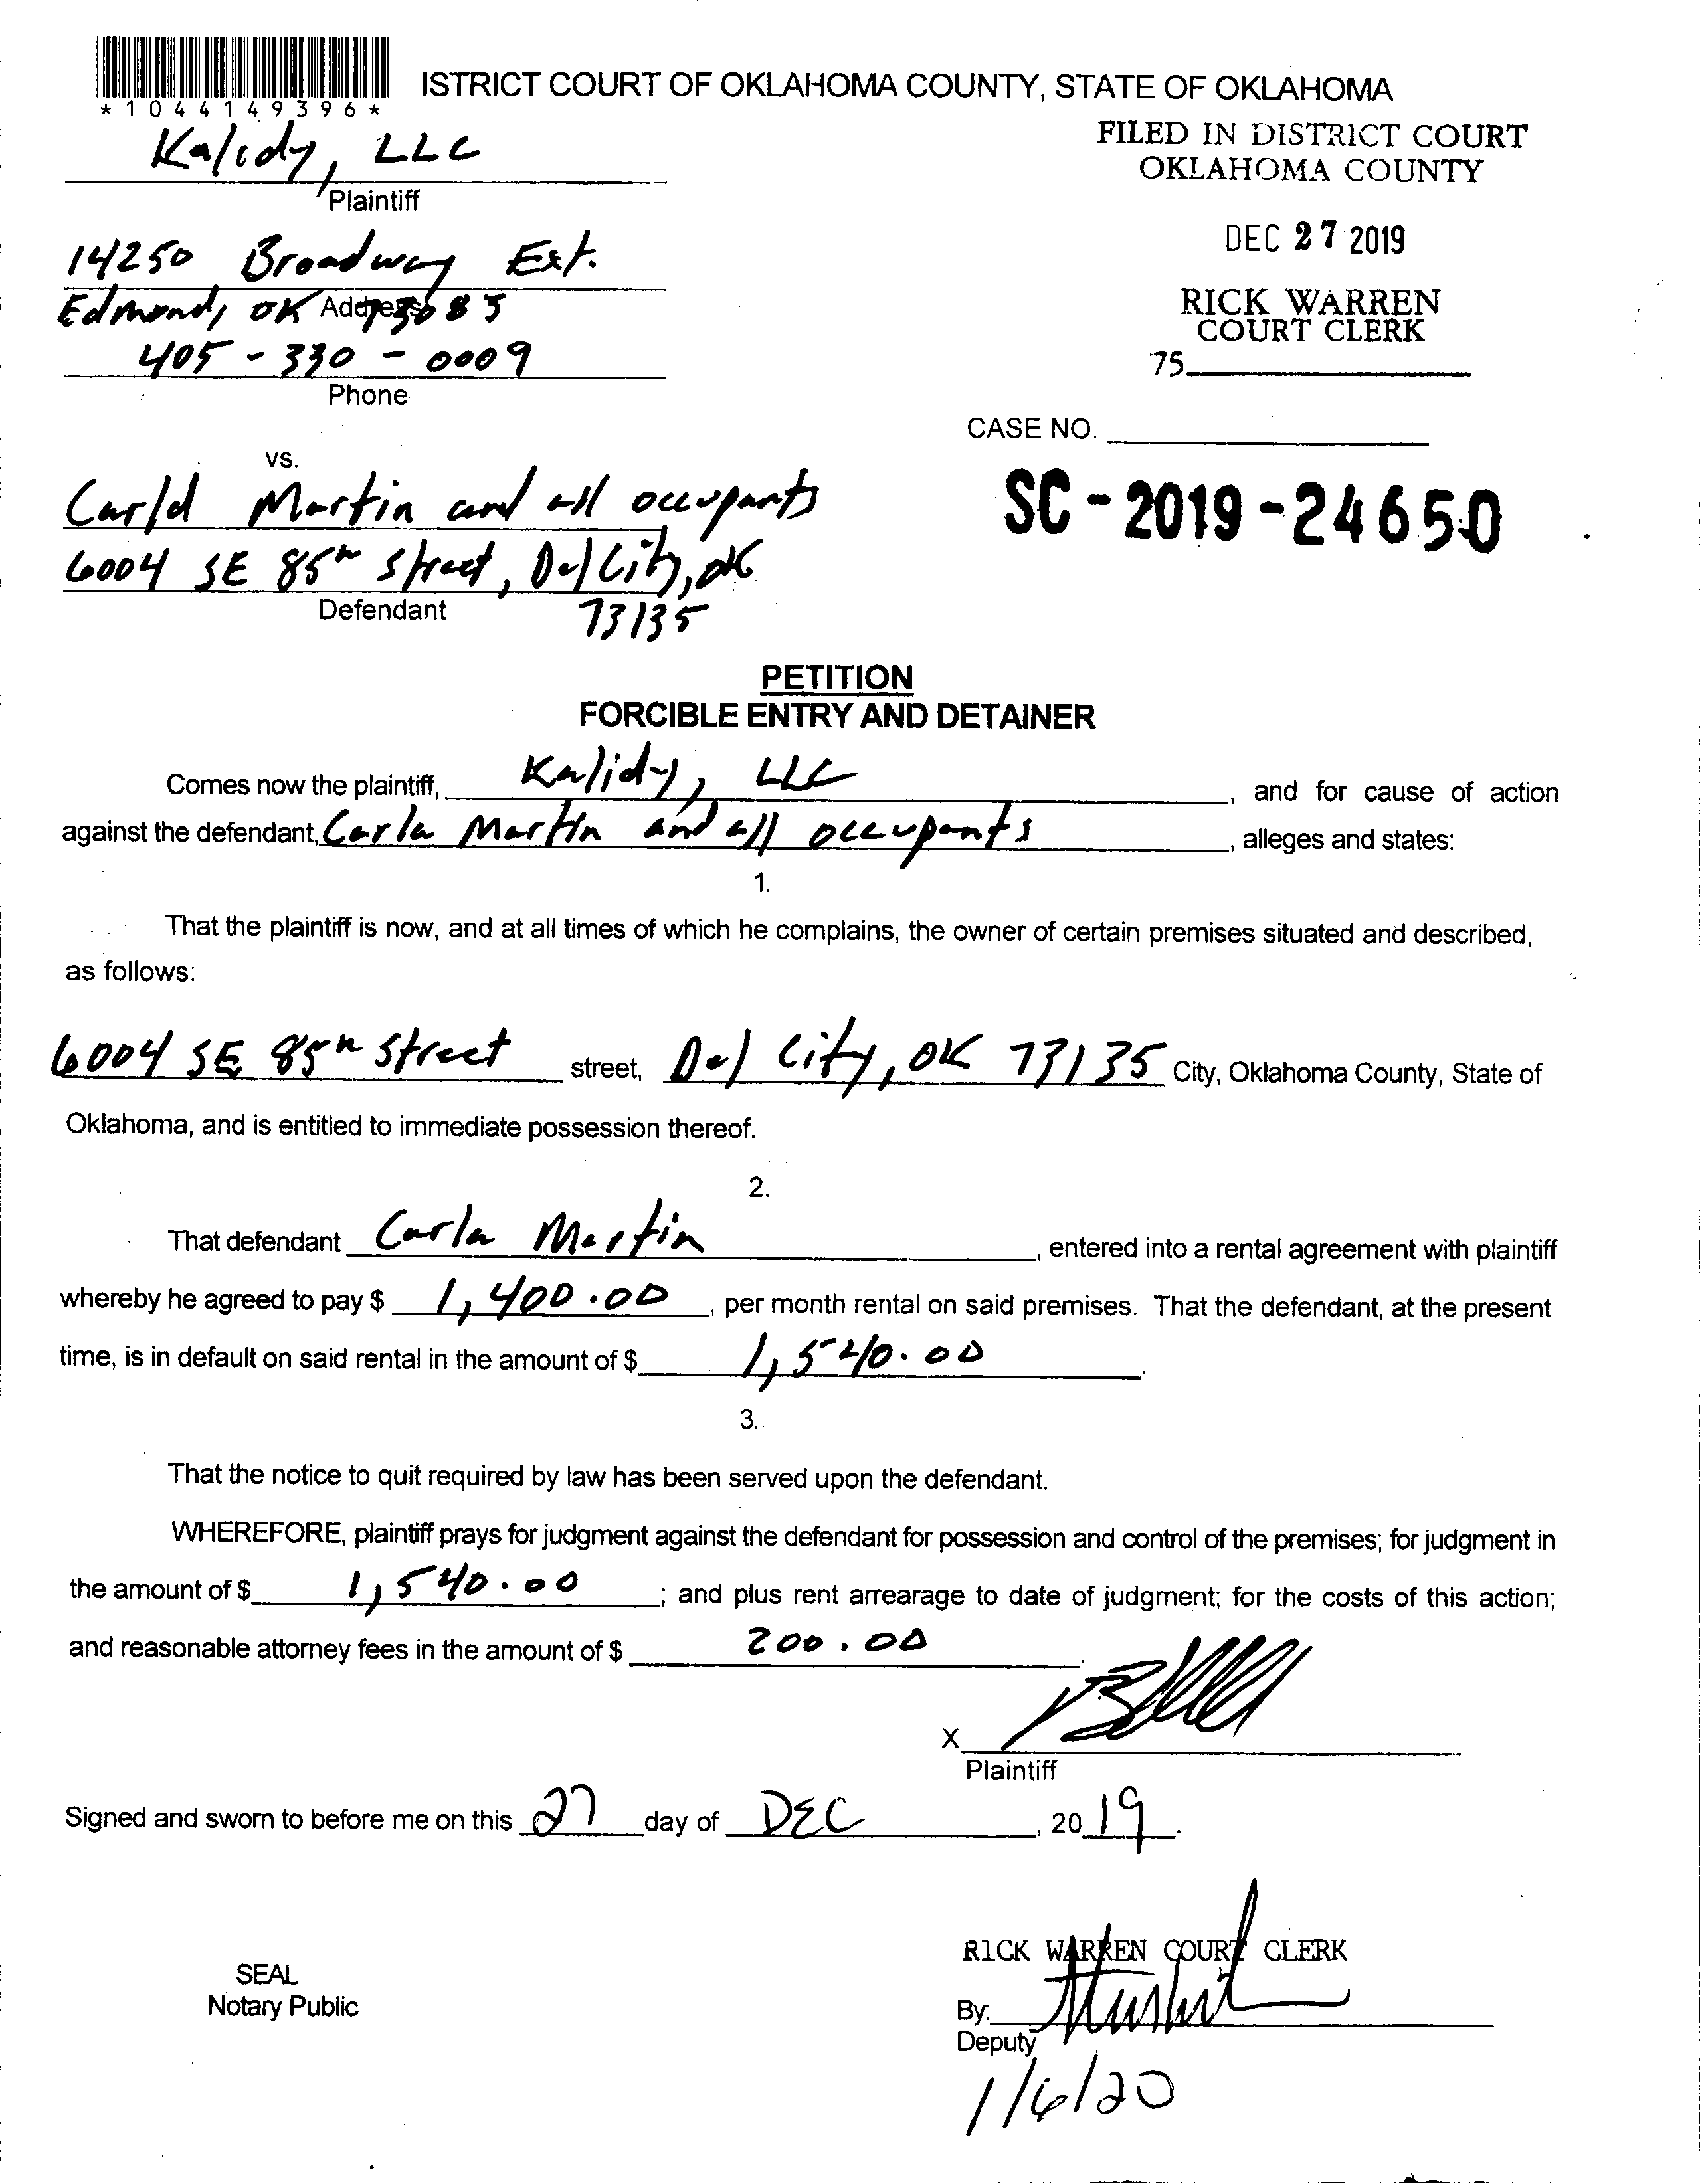 ISTRICT COURT OF OKLAHOMA COUNTY, STATE OF OKLAHOMA
*1044149396*
FILED IN DISTRICT COURT
OKLAHOMA COUNTY
Kalidy, LLC
Plaintiff
DEC 27 2019
14250 Broadway Ext.
Address
Edmond, OK 73083
RICK WARREN
COURT CLERK
75
405-330-0009
Phone
CASE NO.
vs.
SC-2019-24650
Carla Martin and all occupants
6004 SE 85th Street, Del City, OK
Defendant
73135
PETITION
FORCIBLE ENTRY AND DETAINER
Comes now the plaintiff, Kalidy, LLC, and for cause of action
against the defendant, Carla Martin and all occupants, alleges and states:
1.
That the plaintiff is now, and at all times of which he complains, the owner of certain premises situated and described,
as follows:
6004 SE 85th Street street, Del City, OK 73135 City, Oklahoma County, State of
Oklahoma, and is entitled to immediate possession thereof.
2.
That defendant Carla Martin, entered into a rental agreement with plaintiff
whereby he agreed to pay $ 1,400.00, per month rental on said premises. That the defendant, at the present
time, is in default on said rental in the amount of $ 1,540.00.
3.
That the notice to quit required by law has been served upon the defendant.
WHEREFORE, plaintiff prays for judgment against the defendant for possession and control of the premises; for judgment in
the amount of $ 1,540.00; and plus rent arrearage to date of judgment; for the costs of this action;
and reasonable attorney fees in the amount of $ 200.00.
X
Plaintiff
Signed and sworn to before me on this 27 day of DEC, 2019.
RICK WARREN COURT CLERK
SEAL
Notary Public
By:
Deputy
1/6/20